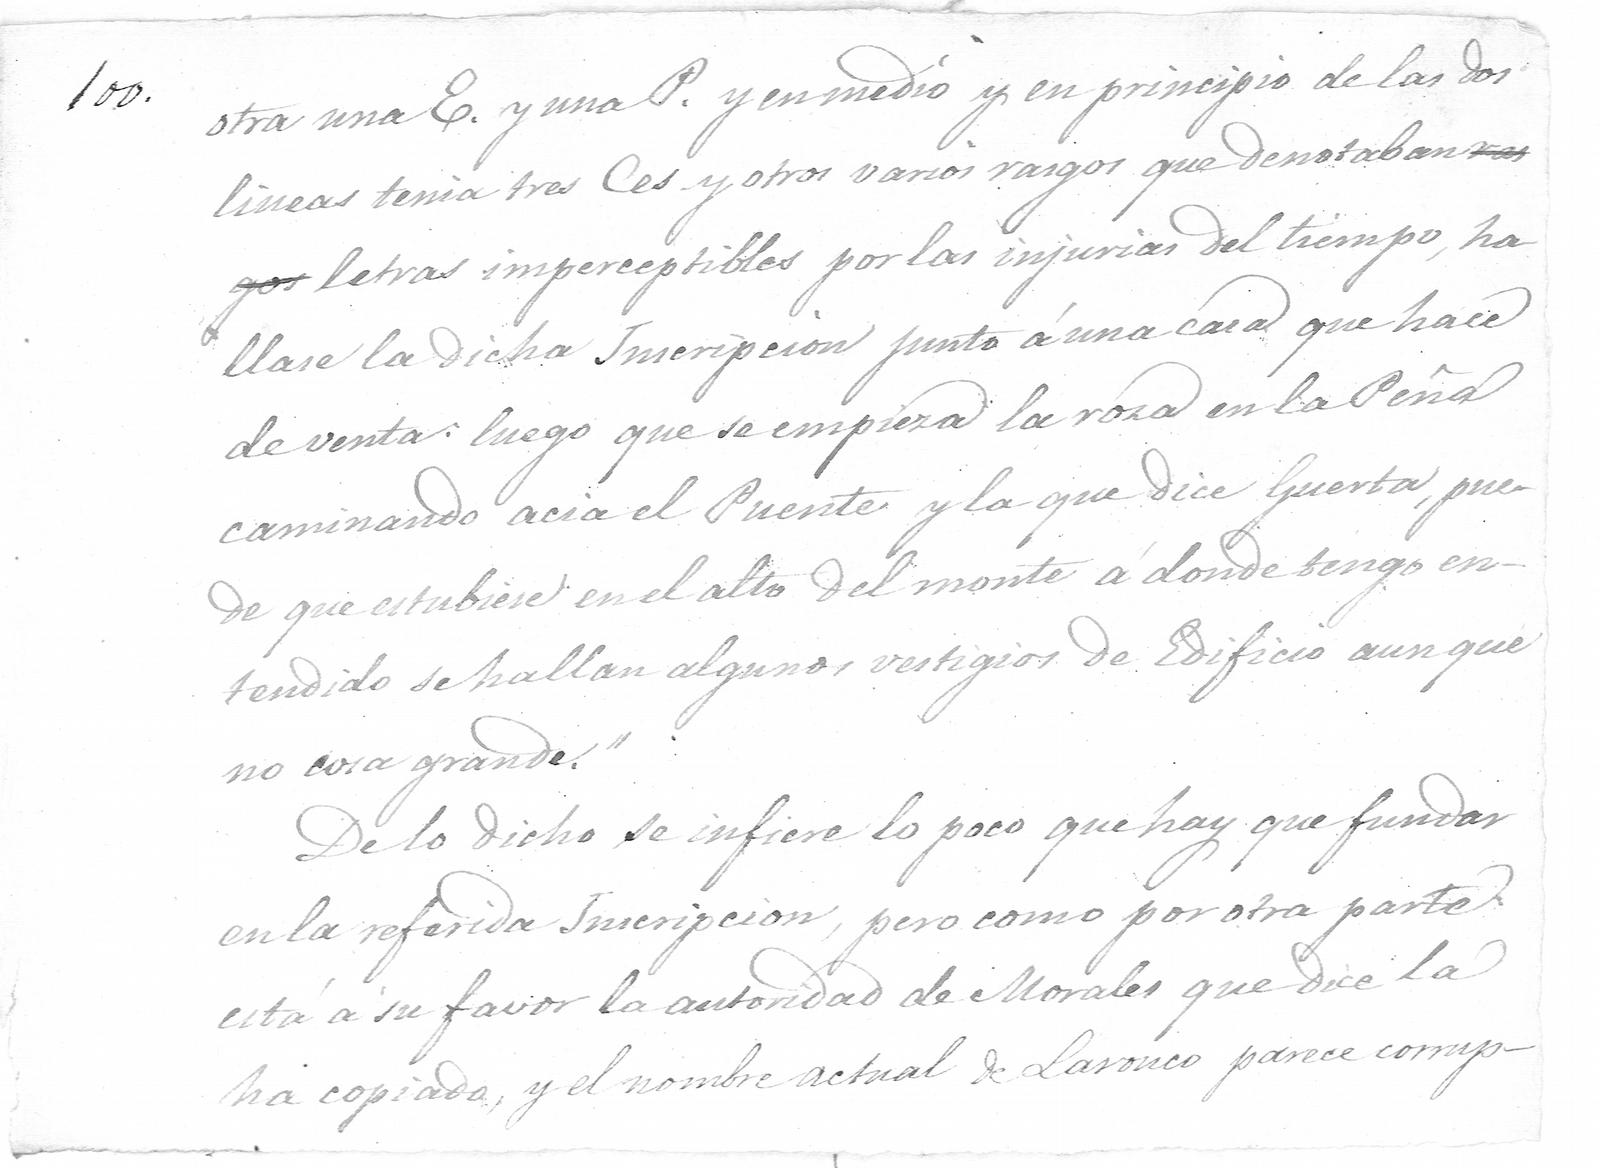 100.
otra una E. y una P. y en medio y en principio de las dos
lineas tenia tres Ces y otros varios rasgos que denotaban ras
gos letras imperceptibles por las injurias del tiempo, ha
llase la dicha Inscripcion junto á una casa que hace
de venta: luego que se empieza la roza en la Peña
caminando acia el Puente y la que dice Guerta, pue-
de que estubiese en el alto del monte á donde tengo en-
tendido se hallan algunos vestigios de Edificio aunque
no cosa grande."
De lo dicho se infiere lo poco que hay que fundar
en la referida Inscripcion, pero como por otra parte
está á su favor la autoridad de Morales que dice la
ha copiado, y el nombre actual de Larouco parece corrup-